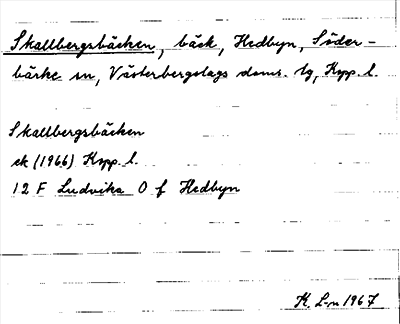 Skallbergsbäcken, bäck, Hedbyn, Söder-
bärke sn, Västerbergslags doms. tg, Kopp. l.
Skallbergsbäcken
ek (1966) Kopp. l.
12 F Ludvika O f Hedbyn
K. L-n 1967